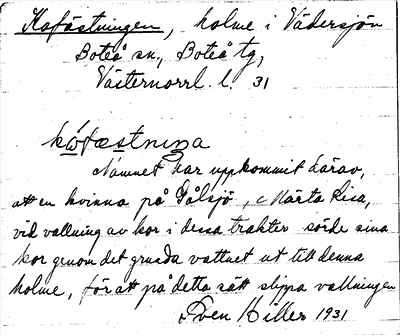 Kofästningen, holme i Vädersjön
Boteå sn, Boteå tg,
Västernorrl. l. 31
kǫ́fæstniŋa
Namnet har uppkommit därav,
att en kvinna på Pålsjö, Märta Lisa,
vid vallning av kor i dessa trakter, körde sina
kor genom det grunda vattnet ut till denna
holme, för att på detta sätt slippa vallningen
Sven Hiller 1931